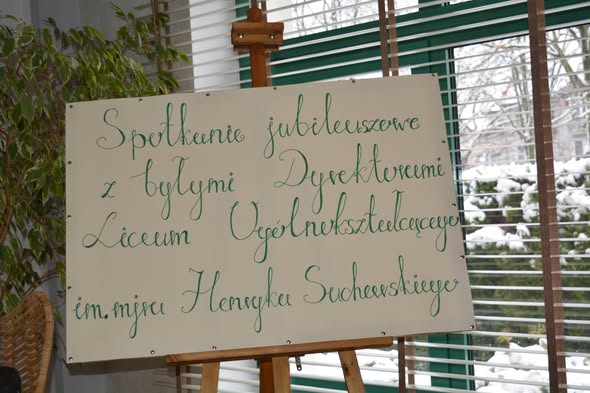 Spotkanie jubileuszowe
z byłymi Dyrektorami
Liceum Ogólnokształcącego
im. mjra Henryka Sucharskiego